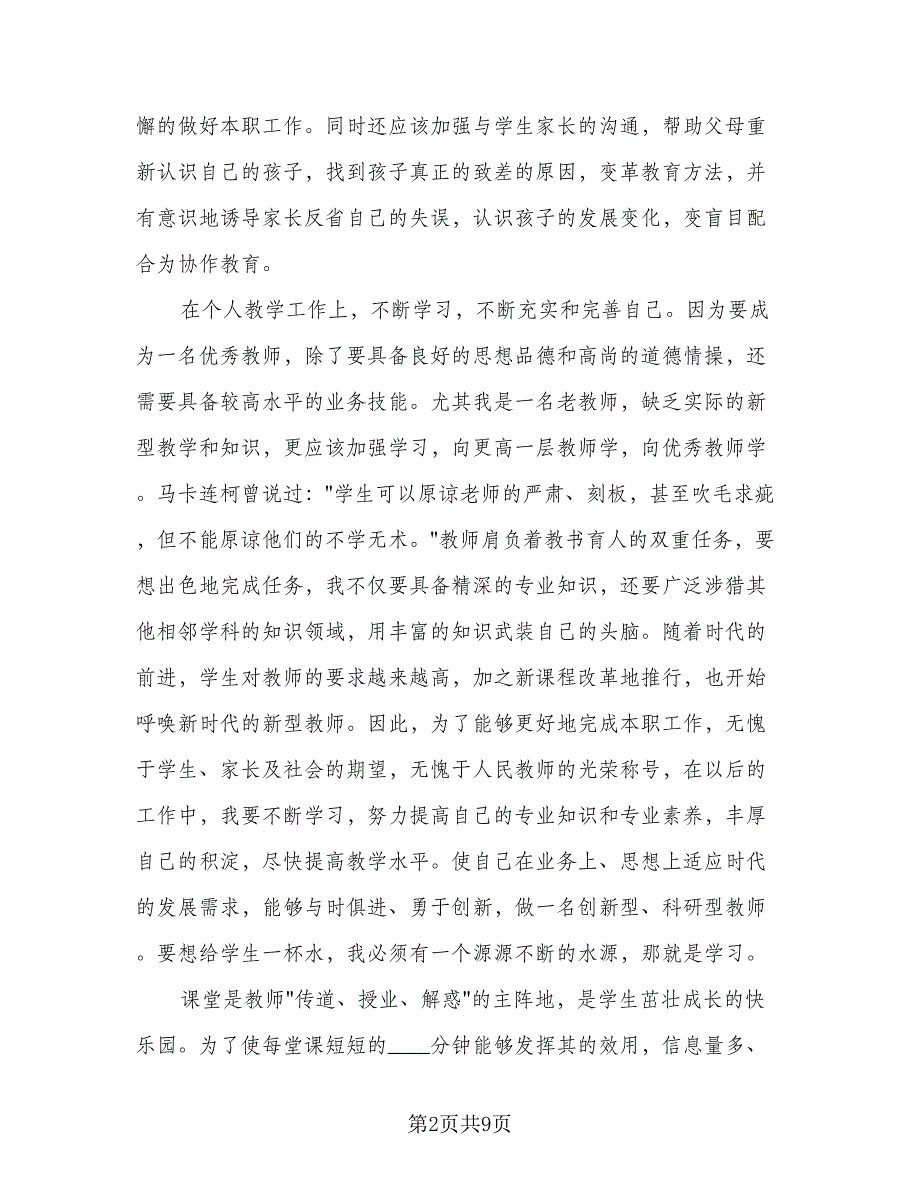 懈的做好本职工作。同时还应该加强与学生家长的沟通，帮助父母重
新认识自己的孩子，找到孩子真正的致差的原因，变革教育方法，并
有意识地诱导家长反省自己的失误，认识孩子的发展变化，变盲目配
合为协作教育。
在个人教学工作上，不断学习，不断充实和完善自己。因为要成
为一名优秀教师，除了要具备良好的思想品德和高尚的道德情操，还
需要具备较高水平的业务技能。尤其我是一名老教师，缺乏实际的新
型教学和知识，更应该加强学习，向更高一层教师学，向优秀教师学
。马卡连柯曾说过："学生可以原谅老师的严肃、刻板，甚至吹毛求疵
，但不能原谅他们的不学无术。"教师肩负着教书育人的双重任务，要
想出色地完成任务，我不仅要具备精深的专业知识，还要广泛涉猎其
他相邻学科的知识领域，用丰富的知识武装自己的头脑。随着时代的
前进，学生对教师的要求越来越高，加之新课程改革地推行，也开始
呼唤新时代的新型教师。因此，为了能够更好地完成本职工作，无愧
于学生、家长及社会的期望，无愧于人民教师的光荣称号，在以后的
工作中，我要不断学习，努力提高自己的专业知识和专业素养，丰厚
自己的积淀，尽快提高教学水平。使自己在业务上、思想上适应时代
的发展需求，能够与时俱进、勇于创新，做一名创新型、科研型教师
。要想给学生一杯水，我必须有一个源源不断的水源，那就是学习。
课堂是教师"传道、授业、解惑"的主阵地，是学生茁壮成长的快
乐园。为了使每堂课短短的____分钟能够发挥其的效用，信息量多、
第2页共9页